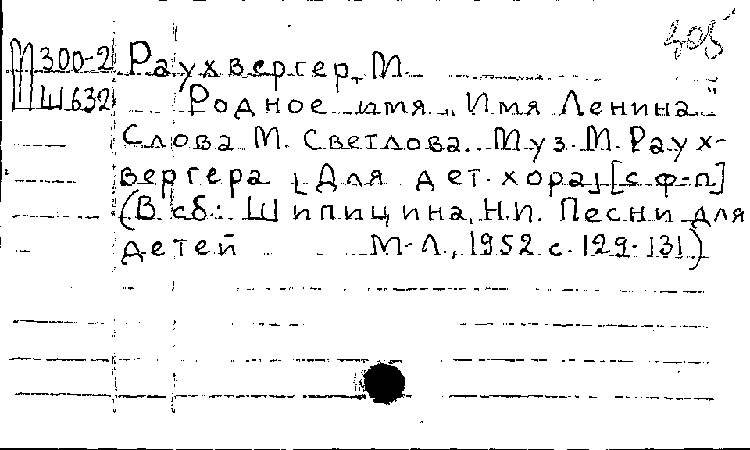 305
М300-2 Раухвергер, М.
Ш632 Родное имя „Имя Ленина"
Слова М. Светлова. Муз. М. Раух-
вергера [Для дет. хора] [с ф-п]
(В сб.: Шипицина, Н.И. Песни для
детей М-Л., 1952 с. 129-131)